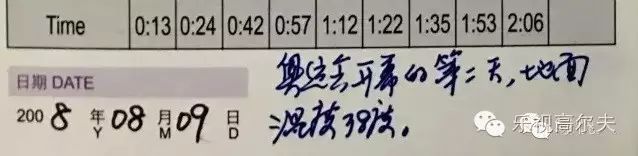 Time 0:13 0:24 0:42 0:57 1:12 1:22 1:35 1:53 2:06
日期 DATE
2008 年 08 月 09 日
Y M D
奥运会开幕的第二天,地面
温度38度。
乐视高尔夫